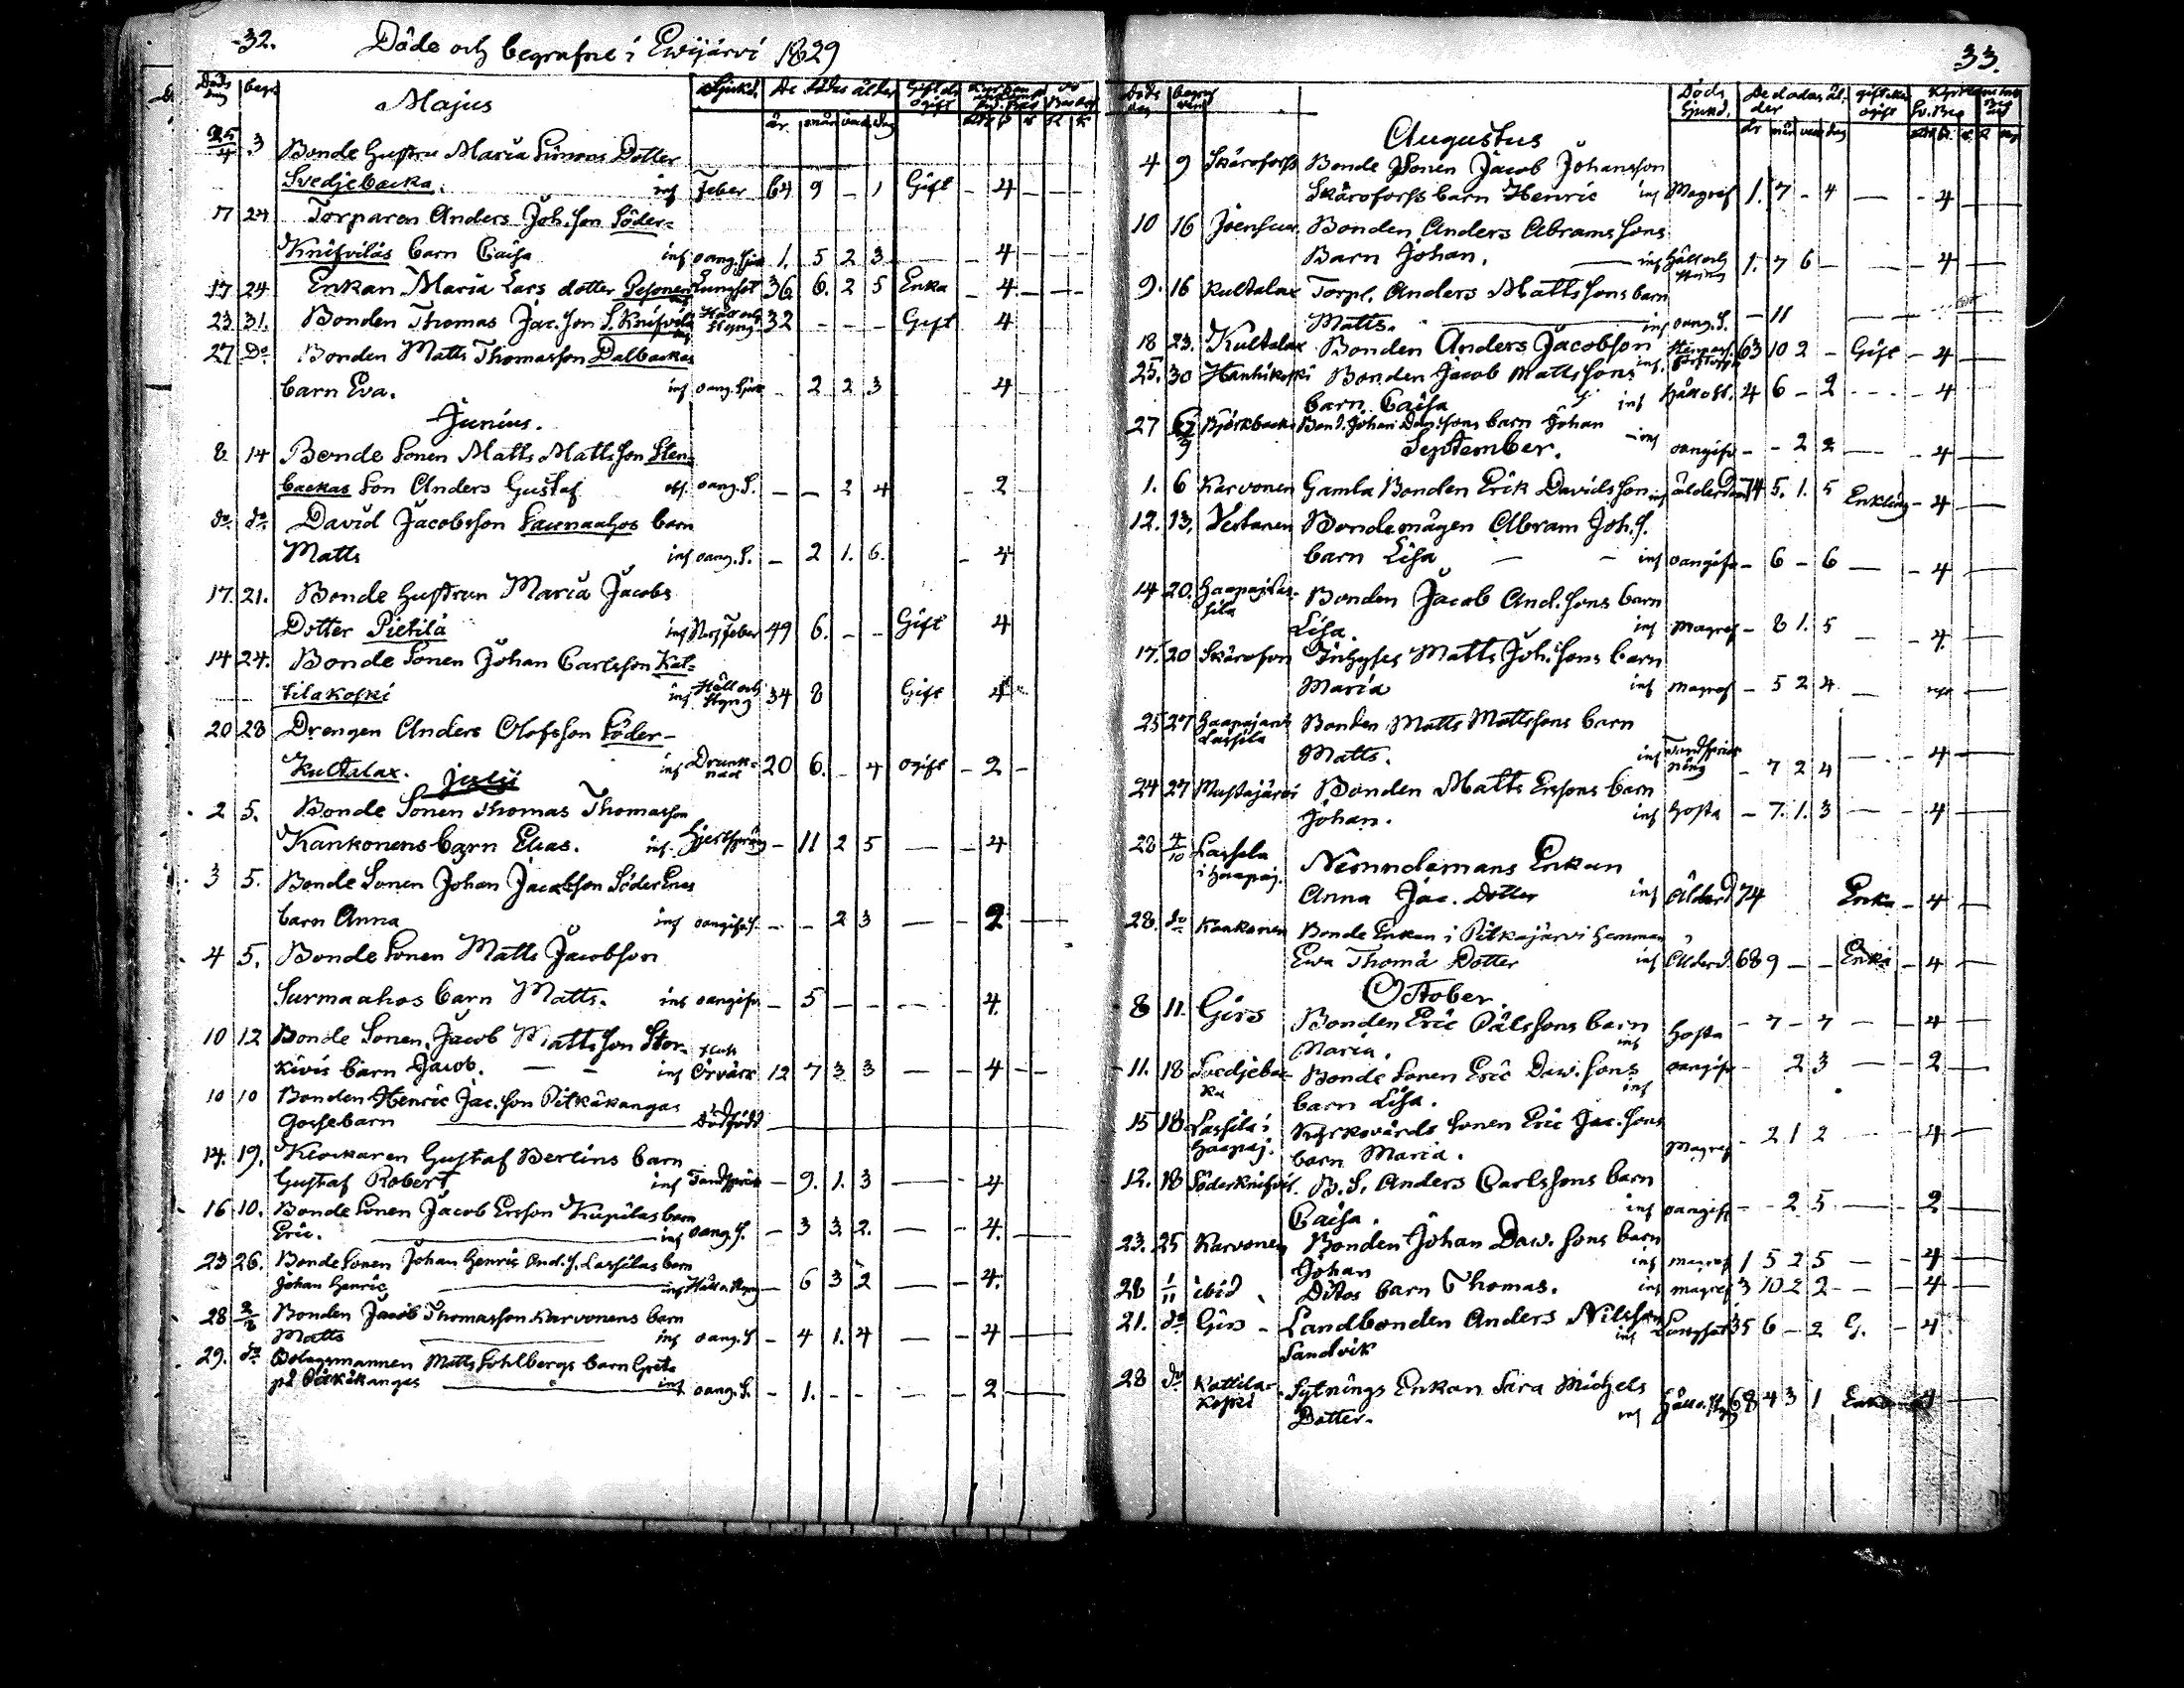 32. Döde och begrafne i Ewijärvi 1829
Döds dag begr Majus Sjukd. De dödas ålder Gift el. ogift
år mån veck dag
25/4 3 Bonde Hustru Maria Simons Dotter
Svedjebacka. ins Feber 64 9 - 1 Gift - 4 - - -
17 24 Torparen Anders Joh.son Söder-
Knifviläs barn Caisa ins oang. sjuk 1. 5 2 3 - 4 -
17 24 Enkan Maria Lars dotter Pesonen Lungsot 36 6. 2 5 Enka - 4 - -
23 31. Bonden Thomas Jac.son S. Knifvilä Håll och Styng 32 - - - Gift 4
27 Do Bonden Matts Thomasson Dalbackas
barn Eva. ins oang. Sjuk - 2 2 3 4
Junius.
8 14 Bonde Sonen Matts Mattsson Sten-
backas Son Anders Gustaf oang. S. - - 2 4 - 2 -
do do David Jacobsson Saunaahos barn
Matts ins oang. S. - 2 1. 6. - 4
17. 21. Bonde Hustrun Maria Jacobs
Dotter Pietilä ins Feber 49 6. - - Gift 4
14 24. Bonde Sonen Johan Carlsson Kat-
tilakoski ins Håll och Styng 34 8 Gift 4
20 28 Drengen Anders Olofsson Söder-
Kultalax. ins Drunk-nad 20 6. - 4 ogift - 2 -
Julij
2 5. Bonde Sonen Thomas Thomasson
Kankonens barn Elias. ins. Hjertspräng - 11 2 5 - - 4
3 5. Bonde Sonen Johan Jacobsson Söder Enas
barn Anna ins oangifv. - - 2 3 - - 2 -
4 5. Bonde Sonen Matts Jacobsson
Surmaahos barn Matts. ins oangifv - 5 - - - 4.
10 12 Bonde Sonen Jacob Mattsson Stor-
kivis barn Jacob. - - ins Örvärk 12 7 3 3 - - 4 -
10 10 Bonden Henric Jac.son Pitkäkangas
Gossebarn Dödfödd
14. 19. Klockaren Gustaf Berlins barn
Gustaf Robert ins Tandsprick - 9. 1. 3 - - 4
16 10. Bonde Sonen Jacob Ersson Kupilas barn
Eric. ins oang. S. - 3 3 2. - - 4.
23 26. Bonde Sonen Johan Henric And. S. Lassilas barn
Johan Henric ins Håll o. Styng - 6 3 2 - - 4.
28 2/8 Bonden Jacob Thomasson Karvonens barn
Matts ins oang. S - 4 1. 4 - - 4
29. do Bolagsmannen Matts Sohlbergs barn Greta
på Pitkäkangas ins oang. S. - 1. - - - - 2
33.
Döds dag begraf Döds Sjukd. De dödas ål-der gift eller ogift
år mån veck dag
Augustus
4 9 Skärsforss Bonde Sonen Jacob Johansson
Skärsforss barn Henric ins Magref 1. 7 - 4 - - 4
10 16 Joensuu Bonden Anders Abrams Sons
Barn Johan. ins Håll och Styng 1. 7 6 - - - 4
9. 16 Kultalax Torp. Anders Mattssons barn
Matts. ins oang. S. - 11
18 23. Kultalax Bonden Anders Jacobson ins. 63 10 2 - Gift - 4
25. 30 Hanhikoski Bonden Jacob Mattssons
barn Caisa ins Håll o St. 4 6 - 2 - - 4
27 6/9 Björkbacka Bond. Johan Dav.sons barn Johan ins oangifv - - 2 2 - - 4
September.
1. 6 Karvonen Gamla Bonden Erik Davidsson ins ålderdom 74 5. 1. 5 Enkling - 4 -
12. 13. Vertanen Bondemågen Abram Joh. S.
barn Lisa - - ins oangifv - 6 - 6 - - 4 -
14 20. Haapajärf- Bonden Jacob And.sons barn
Lisa. ins Magref - 8 1. 5 - - 4.
17. 20 Skärsfors Inhyses Matts Joh.sons barn
Maria ins magref - 5 2 4 -
25 27 Haapajärvi Lassila Bonden Matts Mattssons barn
Matts. ins - 7 2 4 - - 4 -
24 27 Mustajärvi Bonden Matts Erssons barn
Johan. ins Hosta - 7. 1. 3 - - 4 -
28 4/10 Lassila i Haapaj. Nämndemans Enkan
Anna Jac. Dotter ins Ålderd 74 Enka - 4 -
28. do Kankonen Bonde Enkan i Pitkajärvi hemman
Ewa Thomä Dotter ins Ålderd. 68 9 - - Enka - 4 -
October.
8 11. Girs Bonden Eric Pålssons barn
Maria. ins Hosta - 7 - 7 - - 4 -
11. 18 Svedjebac-ka Bonde Sonen Eric Daw. Sons
barn Lisa. ins oangifv - 2 3 - - 2 -
15 18 Lassila i Haapaj. Kyrkovärds Sonen Eric Jac.sons
barn Maria. Magref - 2 1 2 - - 4 -
12. 18 Söderknifvil. B. S. Anders Carlssons barn
Caisa. ins oangifv - - 2 5 - - 2 -
23. 25 Karvonen Bonden Johan Daw. sons barn
Johan ins magref 1 5 2 5 - - 4 -
28 1/11 ibid Ditos barn Thomas. ins magref 3 10 2 2 - - 4 -
21. do Girs - Landbonden Anders Nilsson
Sandvik ins Lungsot 35 6 - 2 G. - 4
28 do Kattila-koski Sytnings Enkan Sara Michels
Dotter. ins Håll o. Styng 68 4 3 1 Enka 4